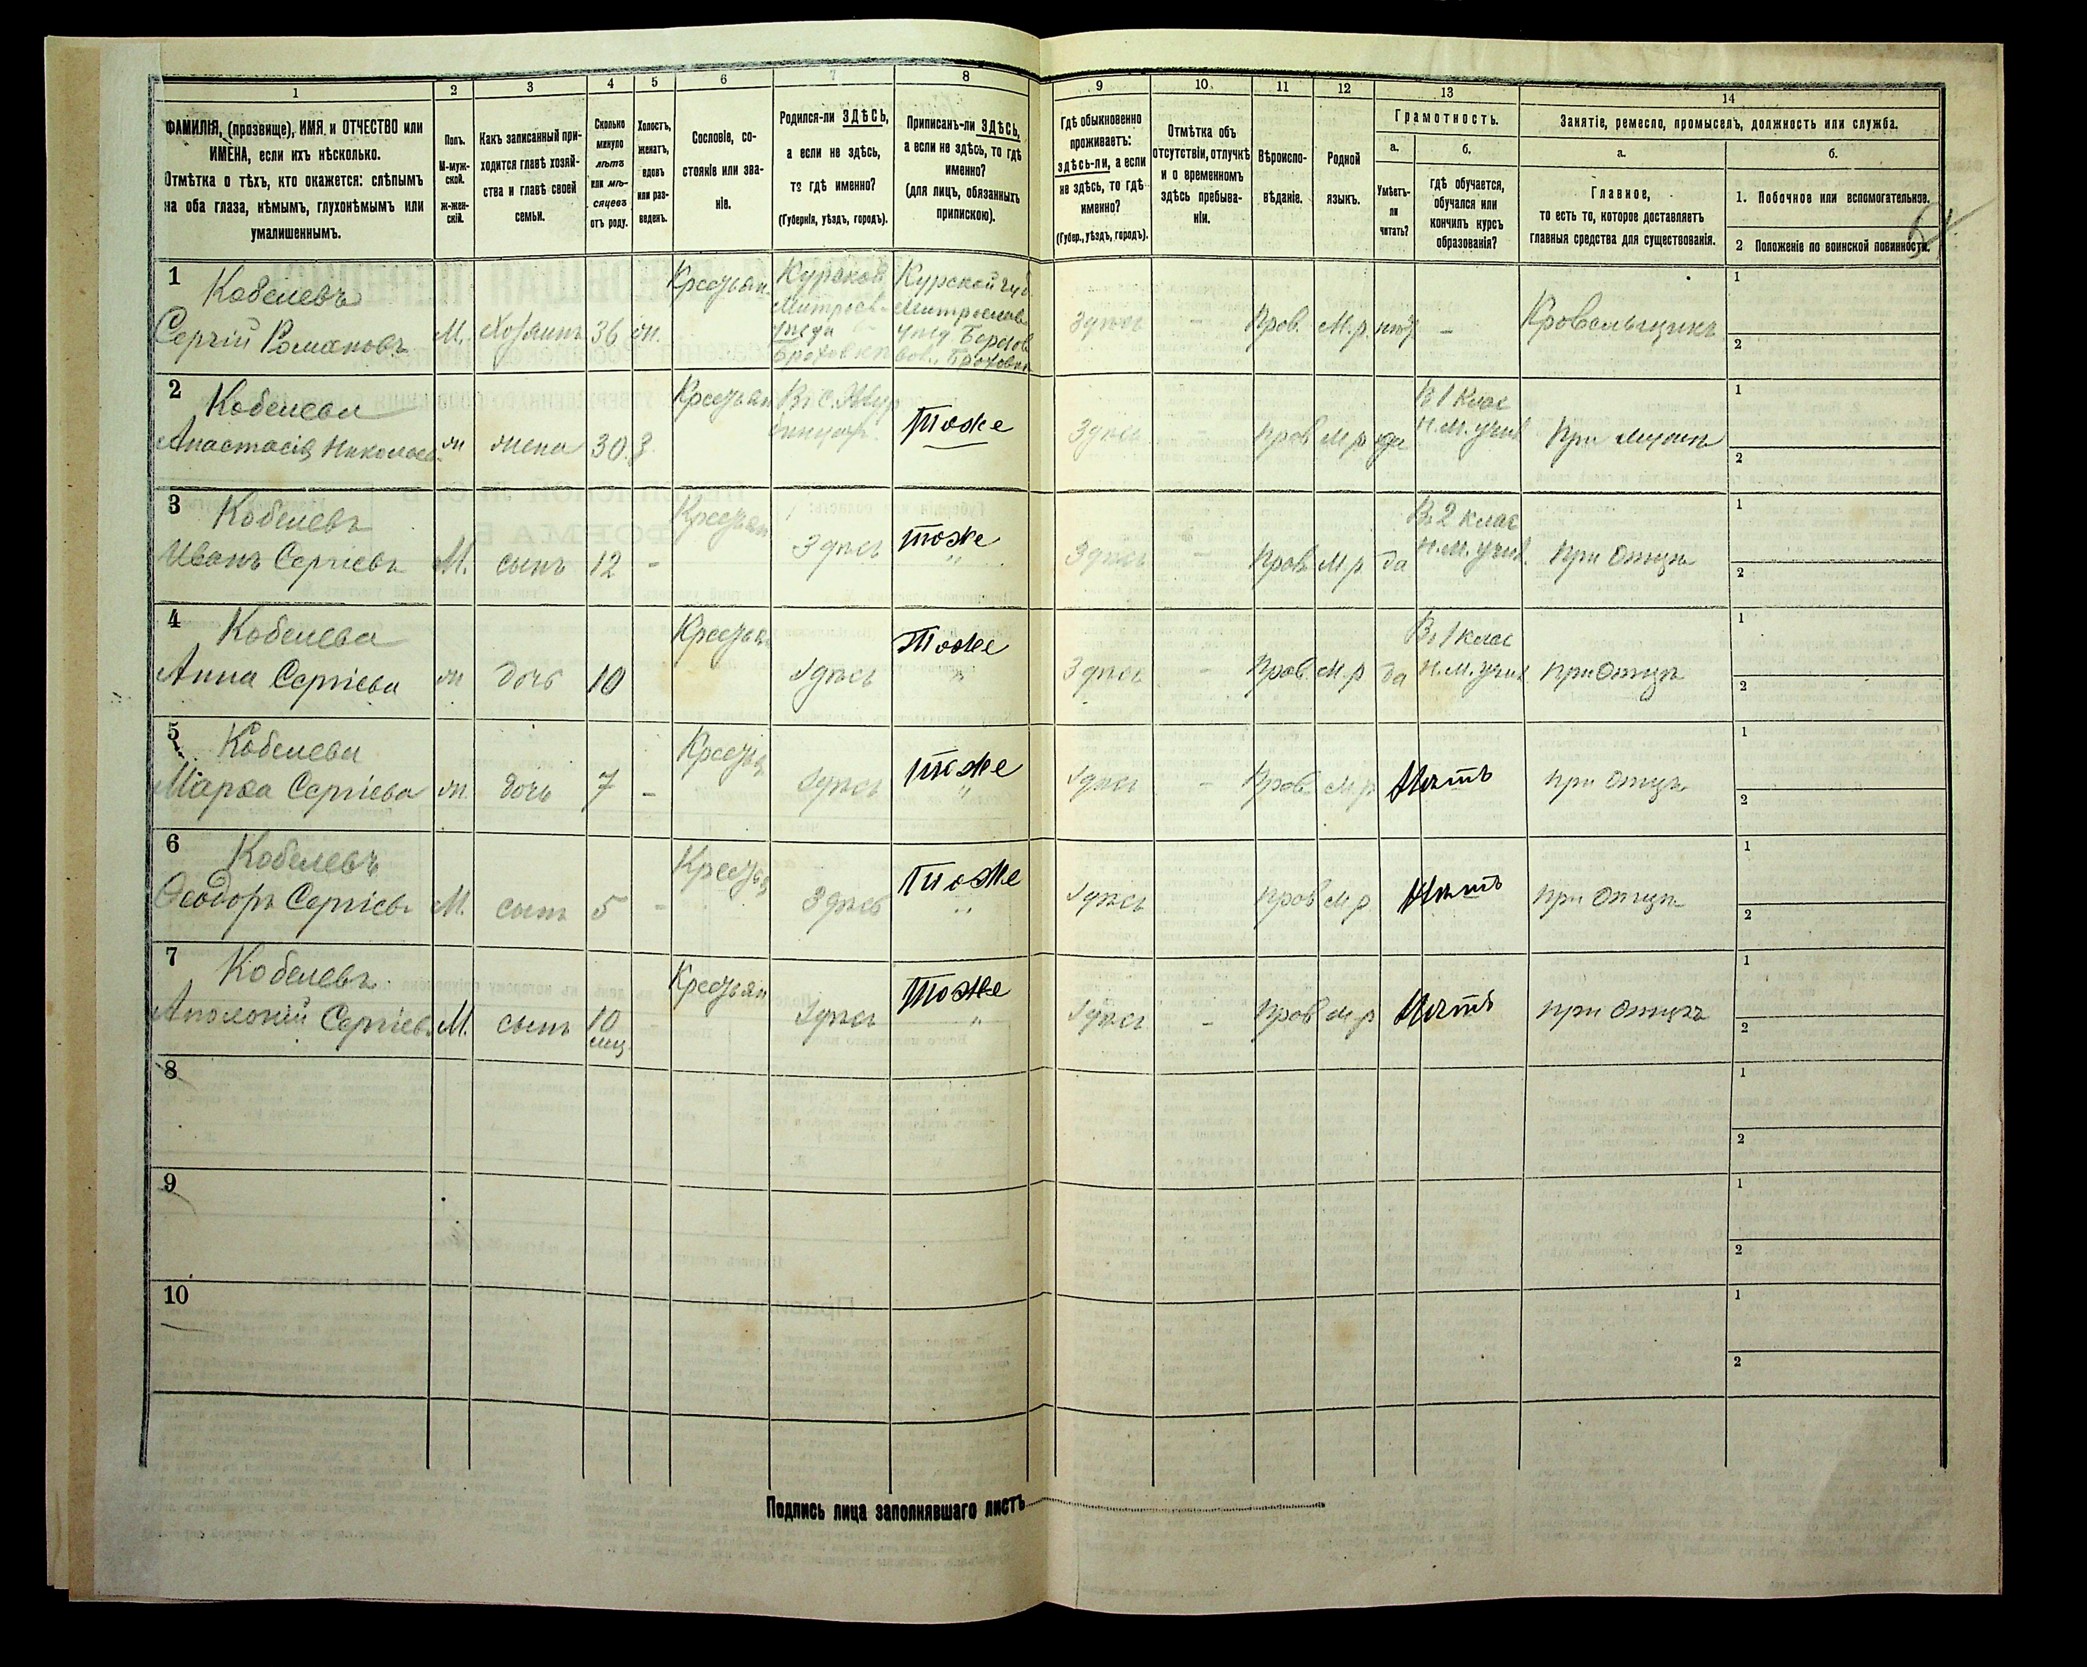 1 2 3 4 5 6 7 8 9 10 11 12 13 14
ФАМИЛІЯ, (прозвище), ИМЯ и ОТЧЕСТВО или
ИМЕНА, если ихъ нѣсколько.
Отмѣтка о тѣхъ, кто окажется: слѣпымъ
на оба глаза, нѣмымъ, глухонѣмымъ или
умалишеннымъ.
Полъ.
М-муж-
ской.
ж-жен-
скій.
Какъ записанный при-
ходится главѣ хозяй-
ства и главѣ своей
семьи.
Сколько
минуло
лѣтъ
или мѣ-
сяцевъ
отъ роду.
Холостъ,
женатъ,
вдовъ
или раз-
веденъ.
Сословіе, со-
стояніе или зва-
ніе.
Родился-ли ЗДѢСЬ,
а если не здѣсь,
то гдѣ именно?
(Губернія, уѣздъ, городъ).
Приписанъ-ли ЗДѢСЬ,
а если не здѣсь, то гдѣ
именно?
(для лицъ, обязанныхъ
припискою).
Гдѣ обыкновенно
проживаетъ:
здѣсь-ли, а если
не здѣсь, то гдѣ
именно?
(Губер., уѣздъ, городъ).
Отмѣтка объ
отсутствіи, отлучкѣ
и о временномъ
здѣсь пребыва-
ніи.
Вѣроиспо-
вѣданіе.
Родной
языкъ.
Грамотность.
а.
Умѣетъ-
ли
читать?
б.
гдѣ обучается,
обучался или
кончилъ курсъ
образованія?
Занятіе, ремесло, промыселъ, должность или служба.
а.
Главное,
то есть то, которое доставляетъ
главныя средства для существованія.
б.
1. Побочное или вспомогательное.
2 Положеніе по воинской повинности.
1
Кобелевъ
Сергій Романовъ
М. Хозяинъ 36 ж.
Крестьян
Курсков
Митроев-
уезда
Курской губ.
уезд
вол.
здѣсь - Прав. М.р. нѣт -
Кровельщикъ
1
2
2
Кобелева
Анастасія Николаев.
ж жена 30 З.
Крестьян
Тоже
Здѣсь - Прав М р да
В 1 клас
Н.М. учил
При мужи
1
2
3
Кобелевъ
Иванъ Сергіевъ
М. сынъ 12 -
Крестьян
Здѣсь
тоже
"
Здѣсь - Прав М р да
В 2 клас
Н.М. учил.
при отцѣ
1
2
4
Кобелева
Анна Сергіева
ж дочь 10
Крестьян
Здѣсь
Тоже
"
Здѣсь - Прав. М.р да
В 1 клас
Н.М. учил
при отцѣ
1
2
5
Кобелева
Марфа Сергіева
ж. дочь 7 -
Крестьян
Здѣсь
тоже
"
Здѣсь - Прав М р Нѣтъ
при отцѣ
1
2
6
Кобелевъ
Ѳеодоръ Сергіевъ
М. сынъ 5 -
Крестья
Здѣсь
Тоже
"
Здѣсь Прав М р Нѣтъ
при отцѣ
1
2
7
Кобелевъ
Аполоній Сергіев.
М. сынъ 10
мец.
Крестьян
Здѣсь
Тоже
"
Здѣсь - Прав М р Нѣтъ
при отцѣ
1
2
8
1
2
9
1
2
10
1
2
Подпись лица заполнявшаго листъ